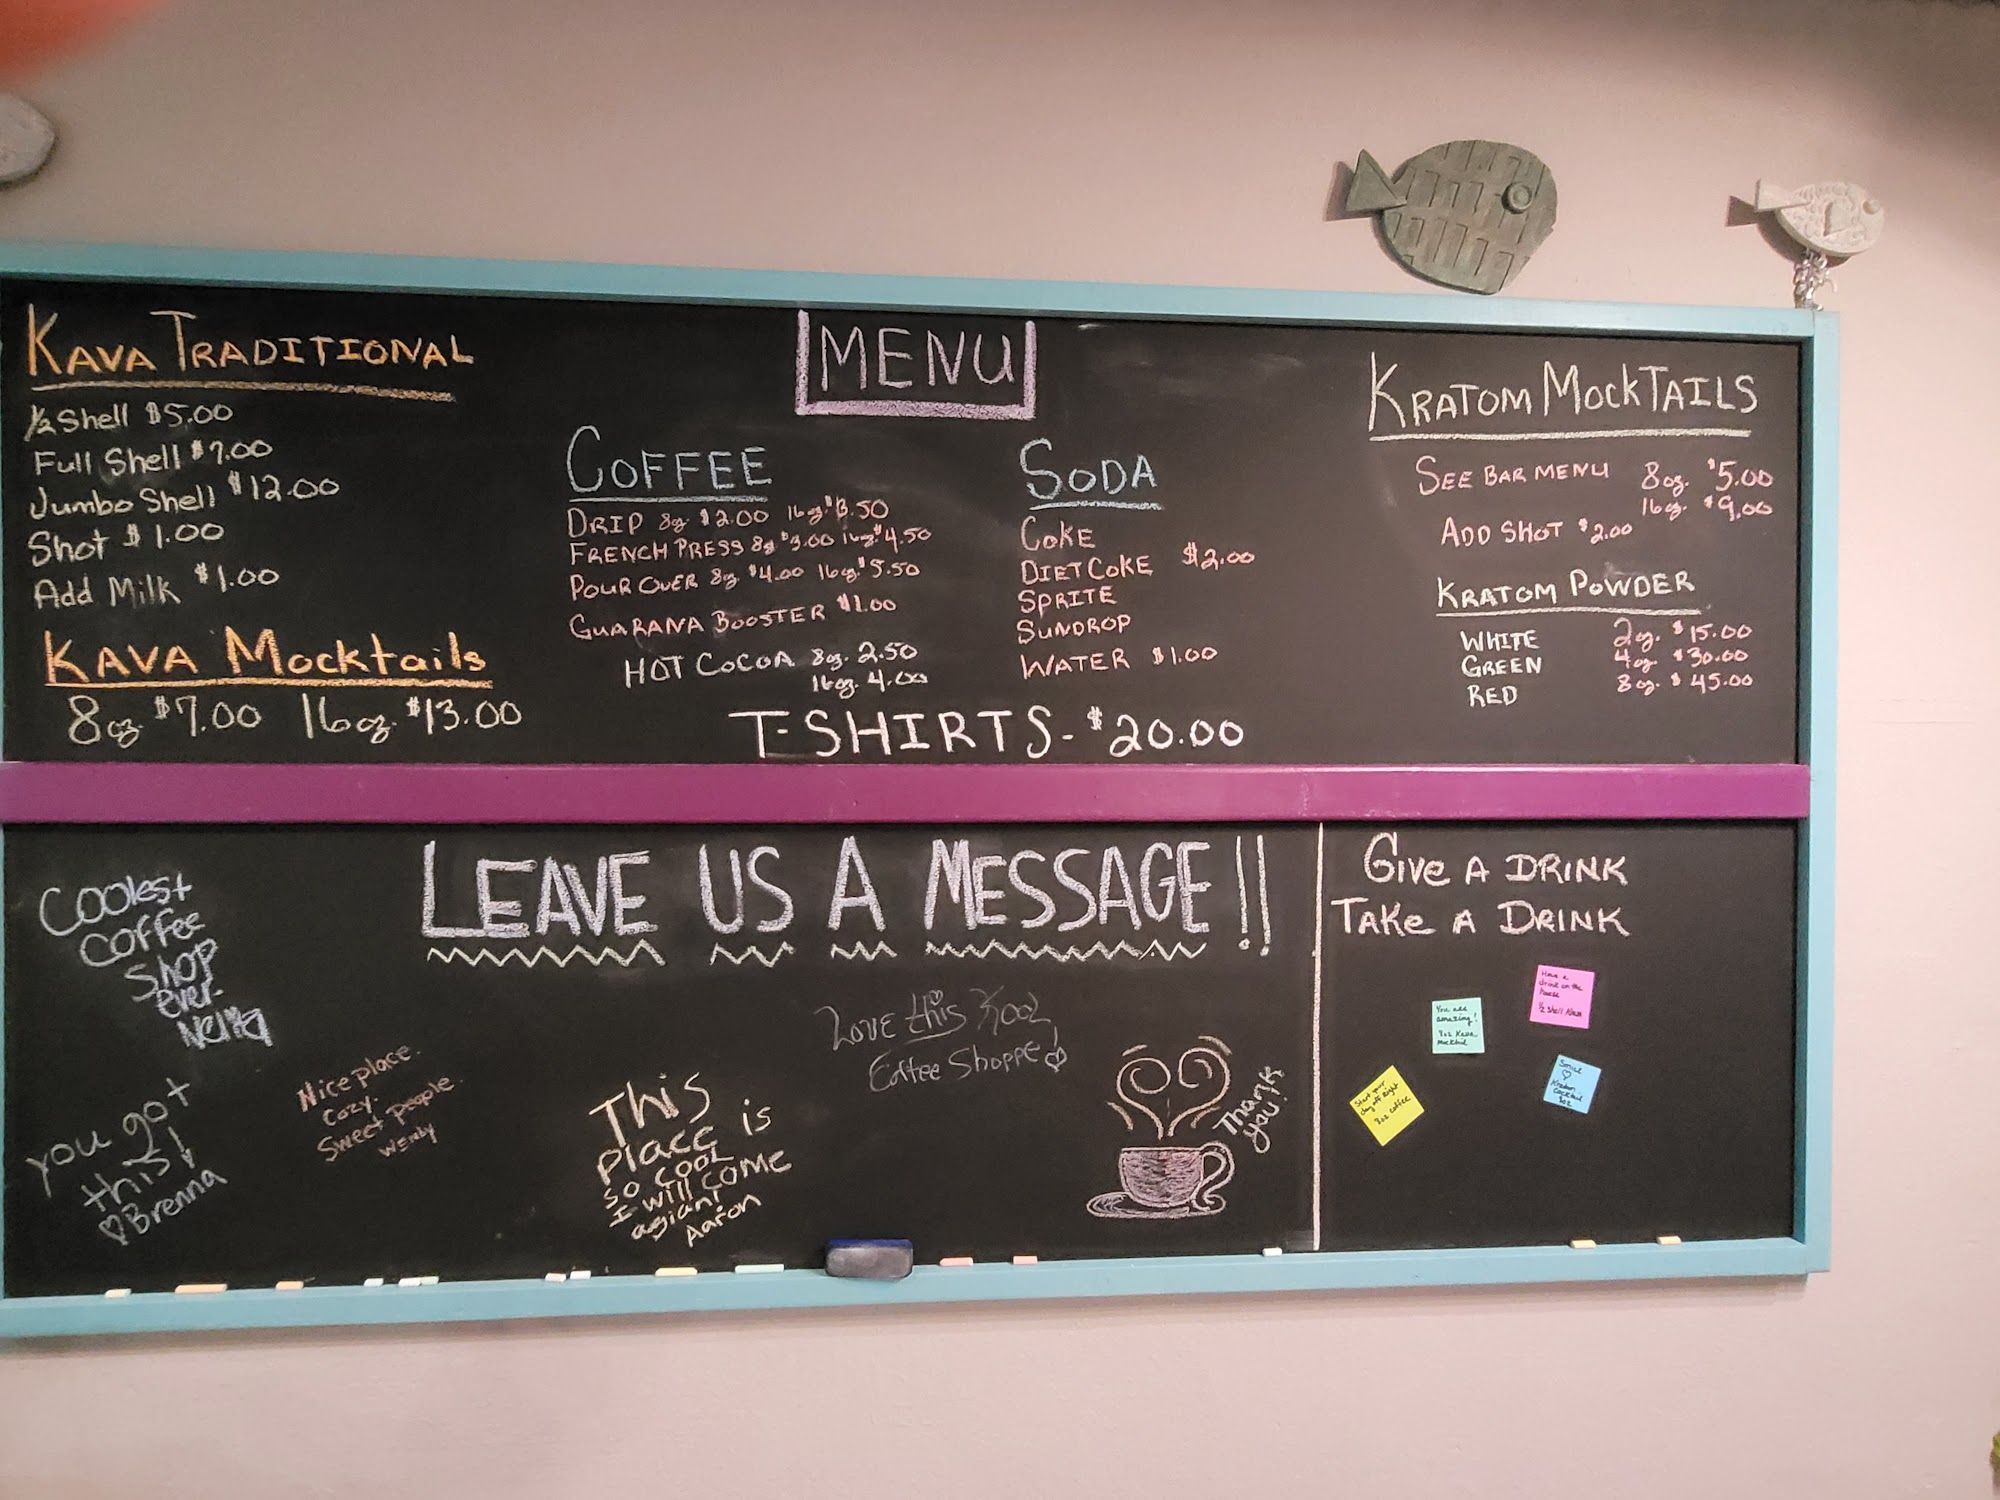 MENU
KAVA TRADITIONAL
½ Shell $5.00
Full Shell $7.00
Jumbo Shell $12.00
Shot $1.00
Add Milk $1.00
KAVA Mocktails
8oz. $7.00 16oz. $13.00
COFFEE
DRIP 8oz $2.00 16oz. $3.50
FRENCH PRESS 8oz $3.00 16oz. $4.50
POUR OVER 8oz. $4.00 16oz. $5.50
GUARANA BOOSTER $1.00
HOT COCOA 8oz. 2.50
16oz. 4.00
SODA
COKE
DIET COKE $2.00
SPRITE
SUNDROP
WATER $1.00
T-SHIRTS- $20.00
KRATOM MOCKTAILS
SEE BAR MENU 8oz. $5.00
16oz. $9.00
ADD SHOT $2.00
KRATOM POWDER
WHITE 2oz. $15.00
GREEN 4oz. $30.00
RED 8oz. $45.00
LEAVE US A MESSAGE!!
Coolest
coffee
shop
ever.
you got
this!
Brenna
Nice place.
Cozy.
Sweet people.
Wendy
This
place is
so cool
I will come
agian!
Aaron
Love this Kool
Coffee Shoppe!
Thank
you!
GIVE A DRINK
TAKE A DRINK
You are
amazing!
8oz Kava
Mocktail
Have a
drink on the
house
½ Shell
Start your
day off right
8oz coffee
Smile
Kratom
Cocktail
8oz